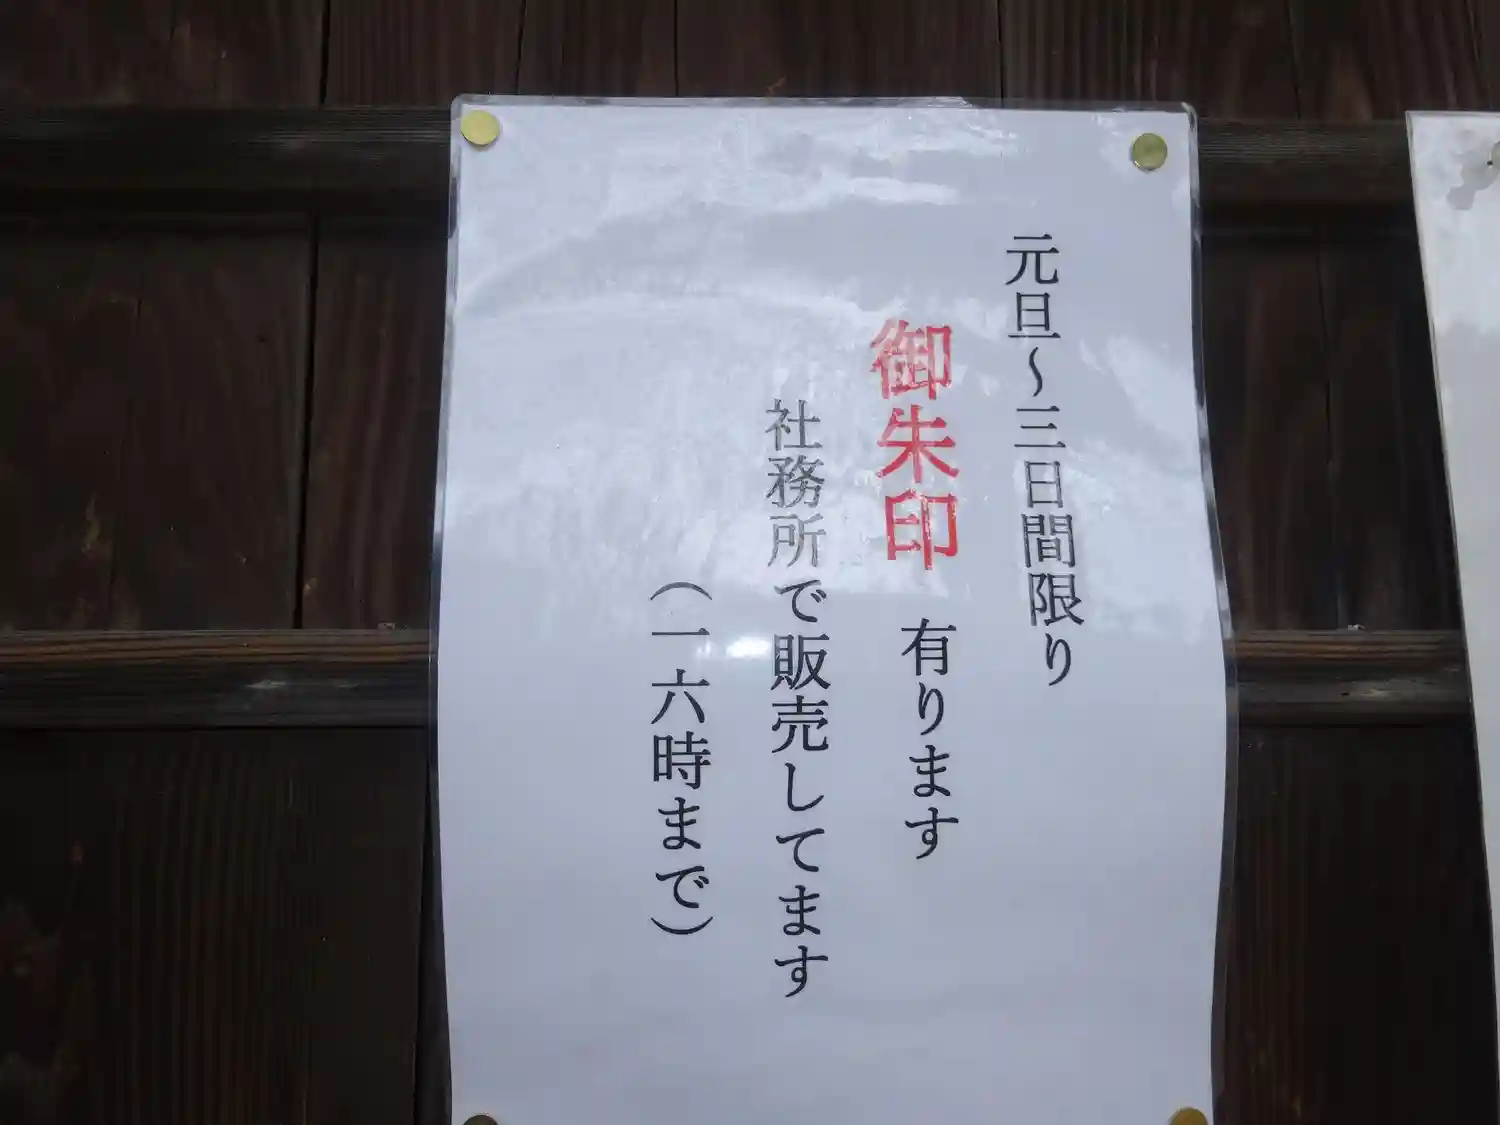 元旦～三日間限り
御朱印 有ります
社務所で販売してます
（一六時まで）